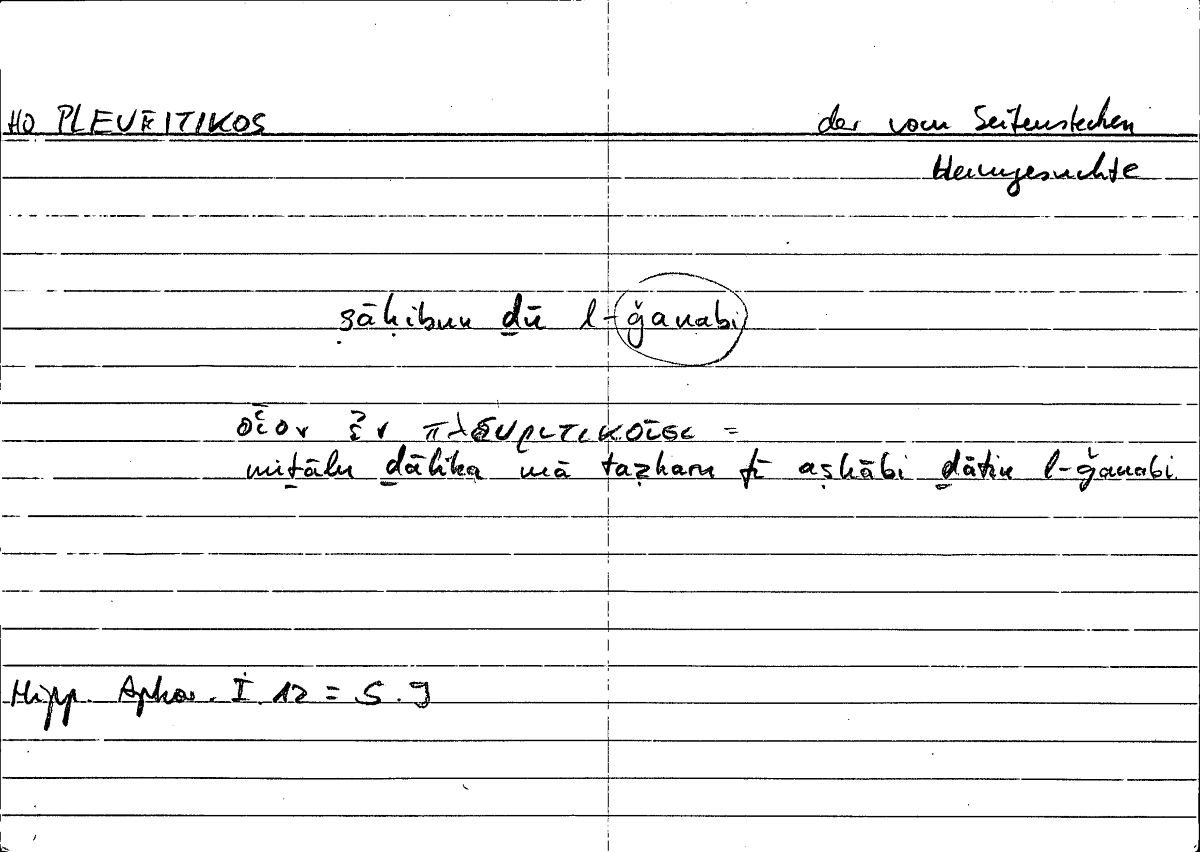 HO PLEURITIKOS
der vom Seitenstechen
Heimgesuchte
ṣāḥibun ḏū l-ǧanabi
οἷον ἐν πλευριτικοῖσι =
miṯālu ḏālika mā taẓharu fī aṣḥābi ḏātiu l-ǧanabi.
Hipp. Aphor. I. 12 = S. 9